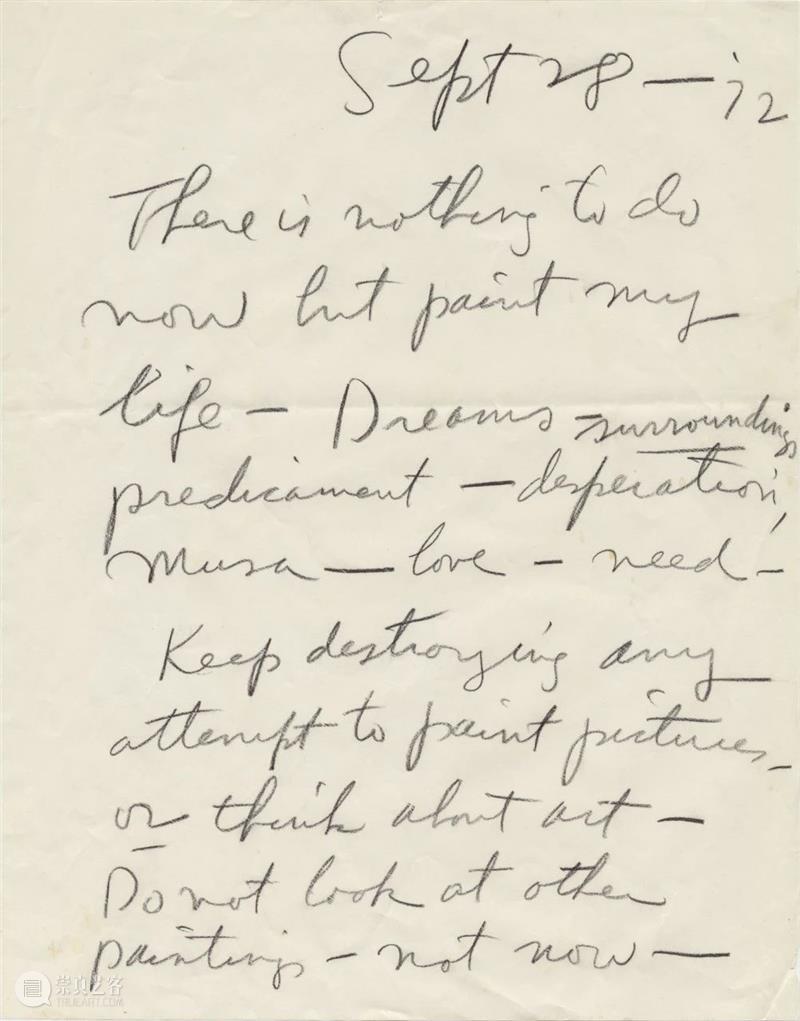 Sept 28 — '72
There is nothing to do
now but paint my
life — Dreams — surroundings
predicament — desperation,
Musa — love — need —
Keep destroying any
attempt to paint pictures —
or think about art —
Do not look at other
paintings — not now —
崇真艺客
TRUEART.COM